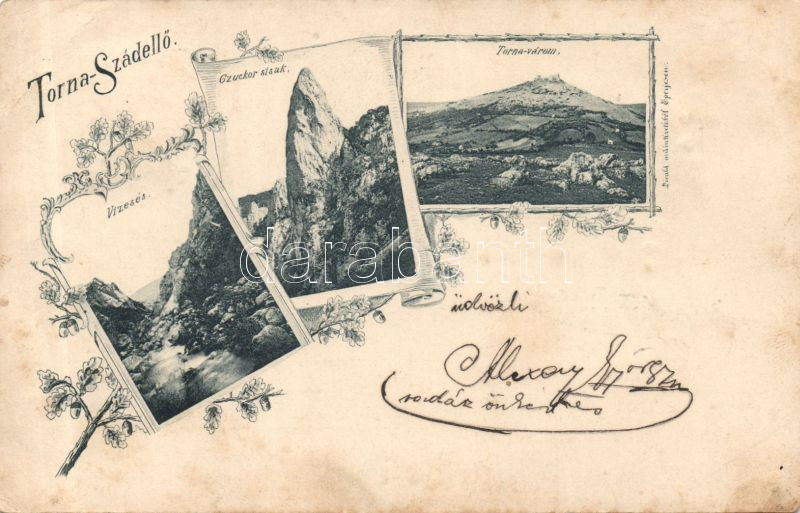 Torna-Szádellő.
Czuckor sisak.
Torna-várom.
Vizesés.
Divald műintézetéből Eperjesen.
darabanth
üdvözli
Alexay György
önkentes